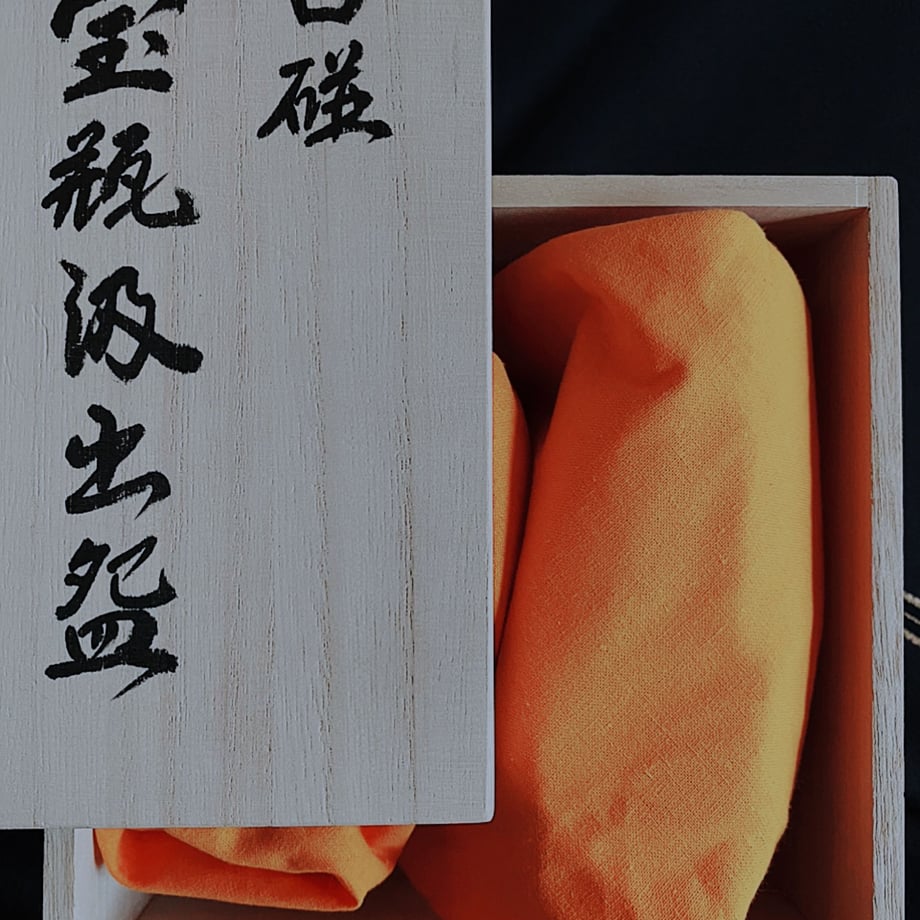 磁
宝瓶汲出盌